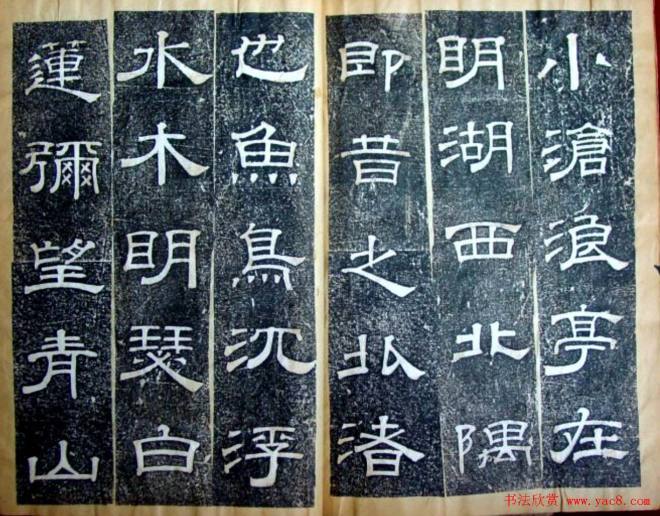 小滄浪亭在
明湖西北隅
即昔之北渚
也魚鳥沉浮
水木明瑟白
蓮彌望青山
书法欣赏 www.yac8.com